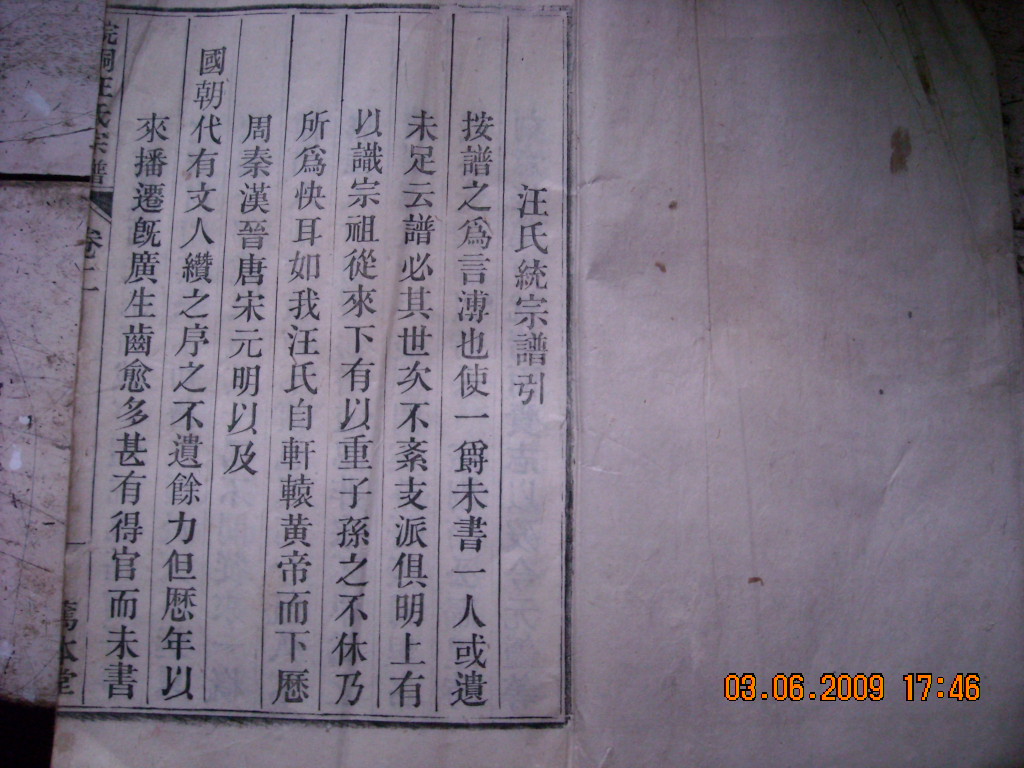 汪氏統宗譜引
按譜之爲言溥也使一爵未書一人或遺
未足云譜必其世次不紊支派俱明上有
以識宗祖從來下有以重子孫之不休乃
所爲快耳如我汪氏自軒轅黃帝而下歷
周秦漢晉唐宋元明以及
國朝代有文人纘之序之不遺餘力但歷年以
來播遷旣廣生齒愈多甚有得官而未書
皖桐汪氏宗譜
卷
本堂
03.06.2009 17:46